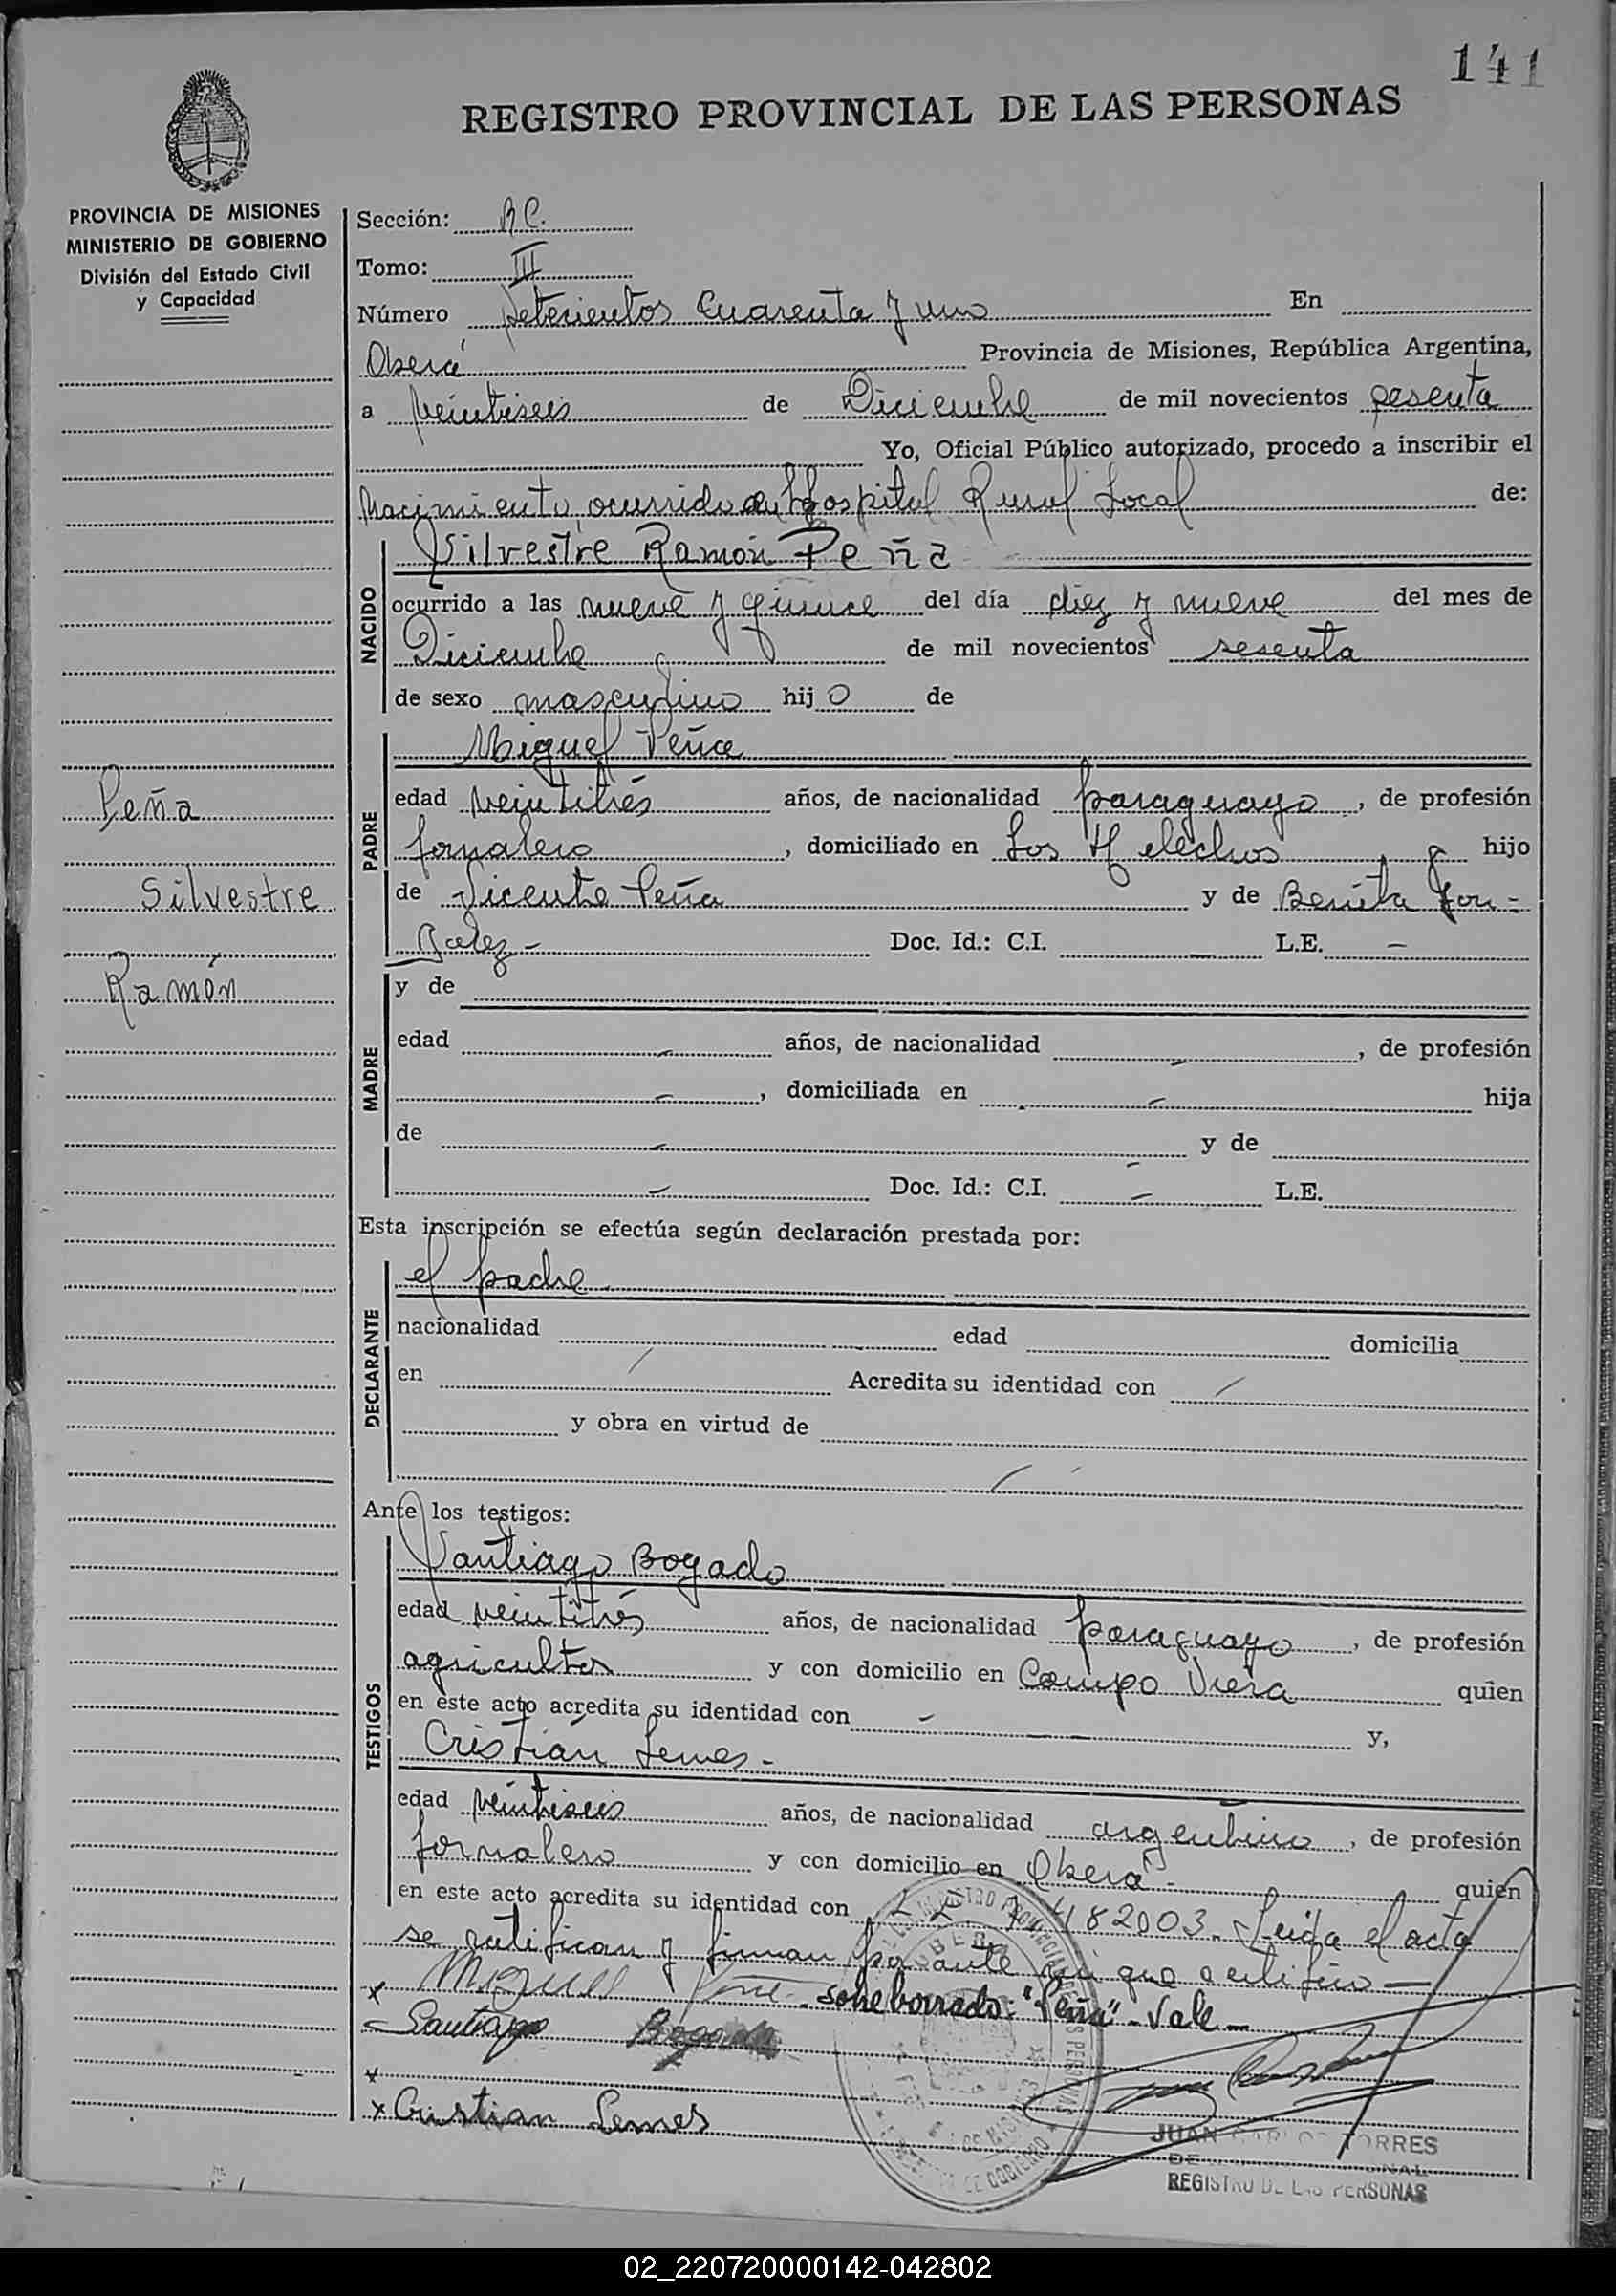 141
REGISTRO PROVINCIAL DE LAS PERSONAS
PROVINCIA DE MISIONES
MINISTERIO DE GOBIERNO
División del Estado Civil
y Capacidad
Sección: R C.
Tomo: III
Número setecientos cuarenta y uno En
Oberá Provincia de Misiones, República Argentina,
a veintiseis de Diciembre de mil novecientos sesenta
Yo, Oficial Público autorizado, procedo a inscribir el
Nacimiento ocurrido en Hospital Rural Local de:
NACIDO
Silvestre Ramón Peña
ocurrido a las nueve y quince del día diez y nueve del mes de
Diciembre de mil novecientos sesenta
de sexo masculino hijo de
PADRE
Miguel Peña
edad veintitrés años, de nacionalidad paraguayo, de profesión
jornalero, domiciliado en Los Helechos hijo
de Vicente Peña y de Benita Gon-
zalez - Doc. Id.: C.I. — L.E. —
Peña
Silvestre
Ramón
MADRE
y de
edad - años, de nacionalidad -, de profesión
-, domiciliada en - hija
de - y de
- Doc. Id.: C.I. - L.E.
Esta inscripción se efectúa según declaración prestada por:
DECLARANTE
el padre
nacionalidad edad domicilia
en / Acredita su identidad con /
y obra en virtud de
/
Ante los testigos:
TESTIGOS
Santiago Bogado
edad veintitrés años, de nacionalidad paraguayo, de profesión
agricultor y con domicilio en Campo Viera quien
en este acto acredita su identidad con - y,
Cristián Lemes -
edad veintiseis años, de nacionalidad argentino, de profesión
jornalero y con domicilio en Oberá - quien
en este acto acredita su identidad con L E 7.482003. Leida el acta
se ratifican y firman por ante mi que certifico —
x Miguel Peña - sobre borrado: "Peña" - Vale -
Santiago Bogado
x
x Cristian Lemes
JUAN CARLOS TORRES
REGISTRO DE LAS PERSONAS
02_220720000142-042802